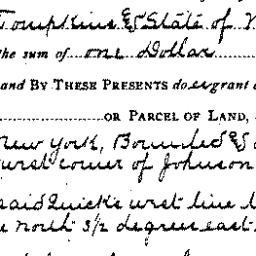 Tompkins & State of
the sum of one Dollar
and BY THESE PRESENTS do es grant
OR PARCEL OF LAND,
New York, Bounded &
west corner of Johnson
said Quick's west line
north 3½ degrees east